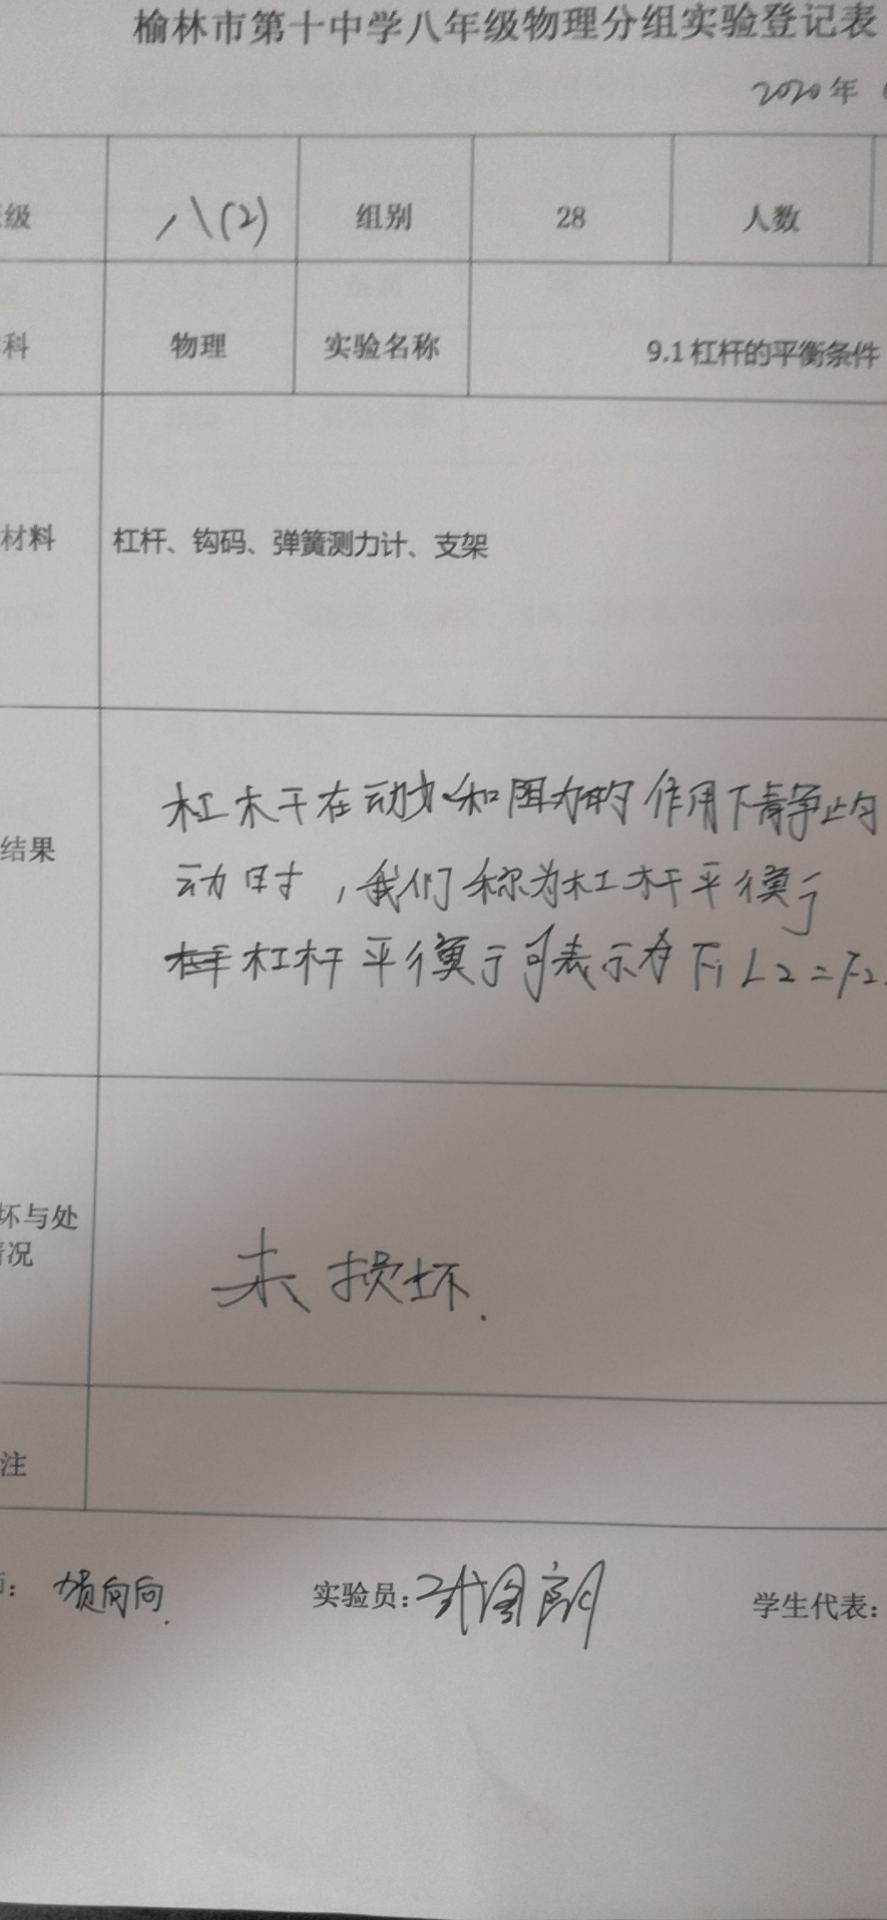 榆林市第十中学八年级物理分组实验登记表
2020年
级 八(2) 组别 28 人数
科 物理 实验名称 9.1杠杆的平衡条件
材料 杠杆、钩码、弹簧测力计、支架
杠杆在动力和阻力的作用下静止均
结果
动时，我们称为杠杆平衡
杠杆平衡可表示为F1L2=F2
坏与处
情况
未损坏.
注
：
实验员：
学生代表：